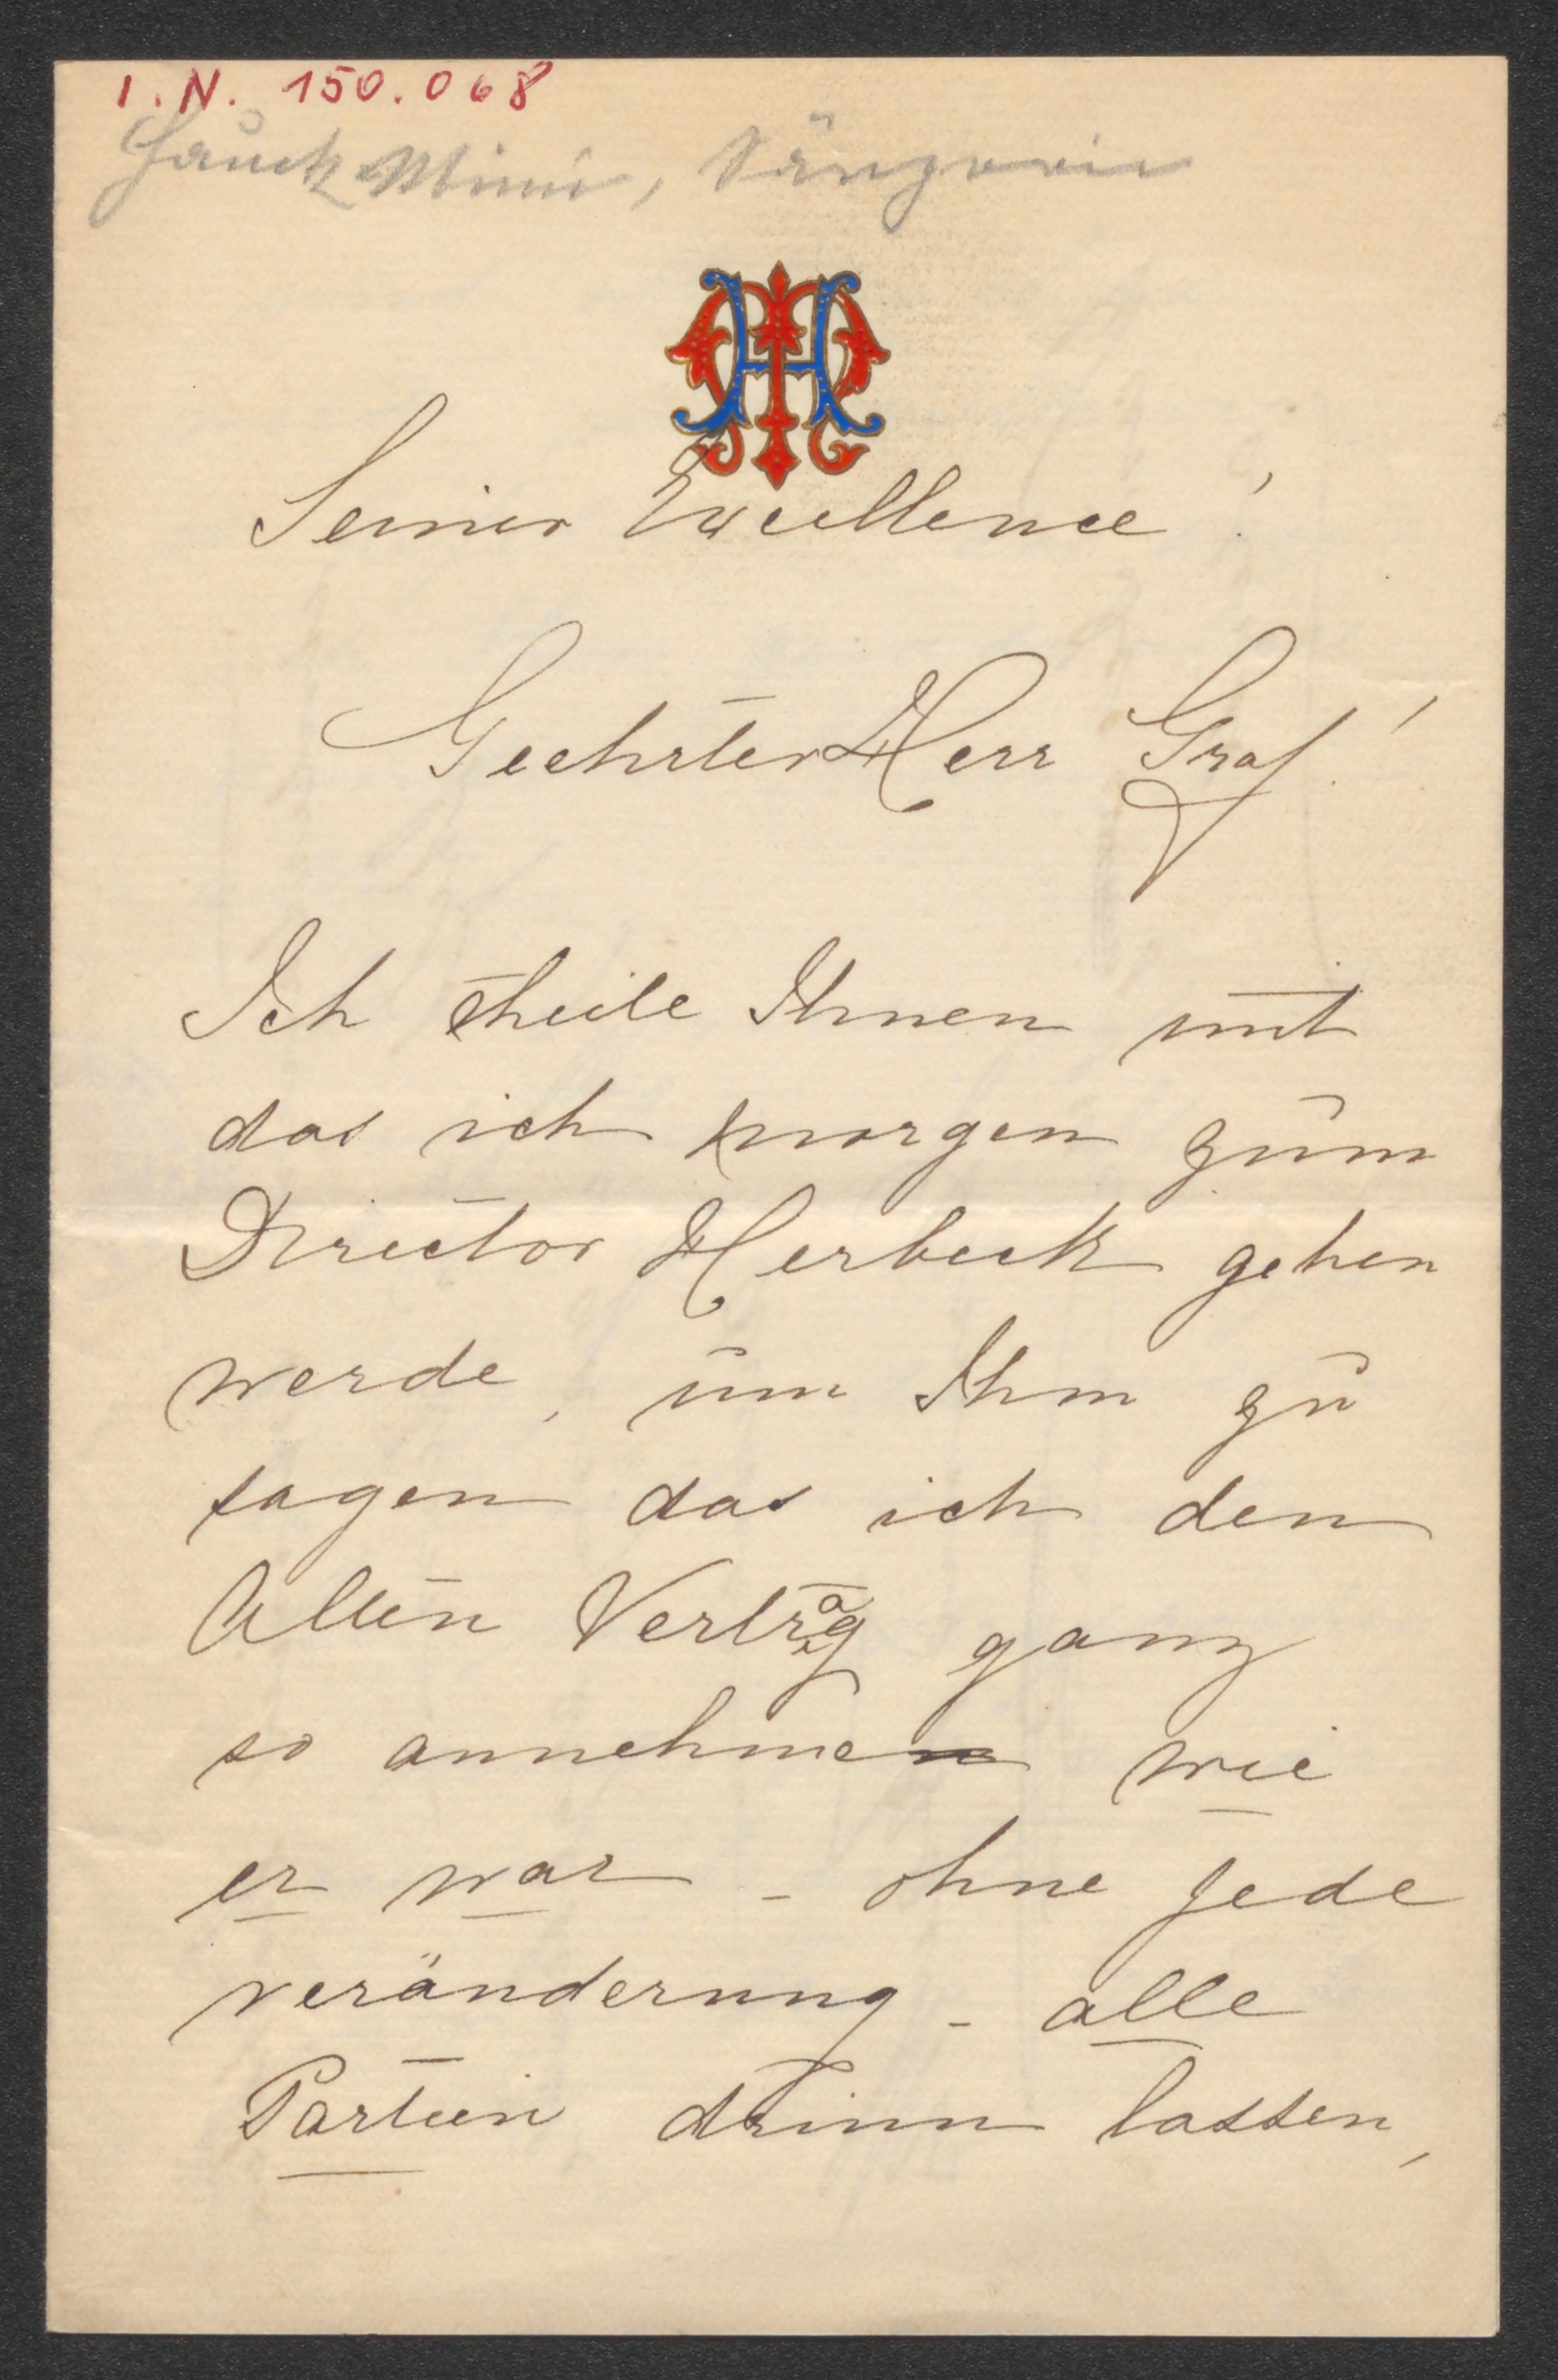 I.N. 150.068
Hauck Minni, Sängerin
MH
Seiner Excellence!
Geehrter Herr Graf!
Ich theile Ihnen mit
das ich morgen zum
Director Herbeck gehen
werde, um Ihm zu
sagen das ich den
Alten Vertrag ganz
so annehmen wie
er war - ohne jede
veränderung - alle
Partien drinn lassen,